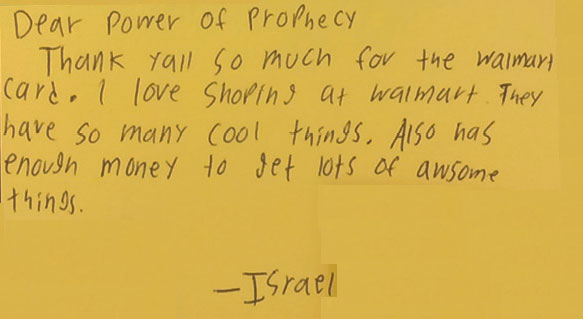 Dear Power of Prophecy
Thank yall so much for the walmart
card. I love shoping at walmart. They
have so many cool things. Also has
enough money to get lots of awsome
things.
—Israel